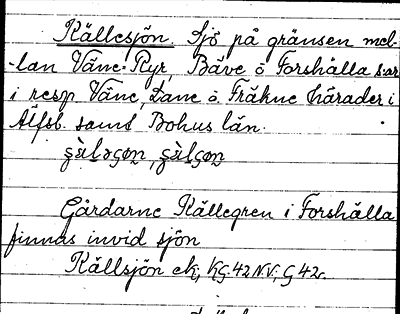 Källesjön. Sjö på gränsen mel-
-lan Väne-Ryr, Bäve o Forshälla s:ar
i resp Väne, Lane o. Fräkne härader i
Älfsb. samt Bohus län.
Gårdarne Källegren i Forshälla
finnas invid sjön
Källsjön ek; KG.42 N.V.; G 42.